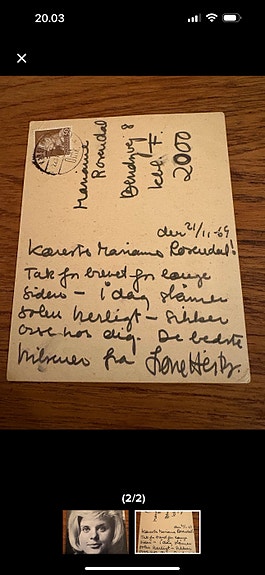 20.03
Marianne
Rosendal
Bendzvej 8
kbh. F.
2000
den 21/11-69
Kæreste Marianne Rosendal!
Tak for brevet for længe
siden – i dag skinner
solen herligt – sikkert
også hos dig. De bedste
hilsener fra Lone Hertz.
(2/2)